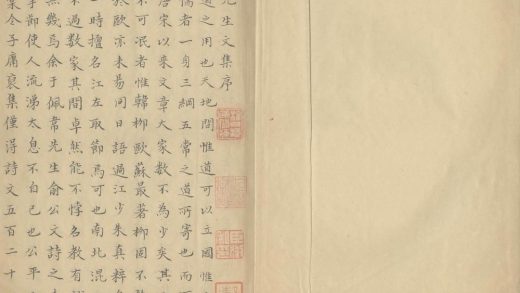 先生文集序
道之用也天地間惟道可以立國惟
儒者一身三綱五常之道所寄也而
唐宋以來文章大家數不為少矣其
不可泯者惟韓柳歐蘇最著柳固不
於歐亦未易同日語過江少朱真粹
一時擅名江左取節焉可也南北混
不過數家其間卓然能不悖名教有
無幾焉余于佩韋先生俞公文詩之
御使人流涕太息不自己也公平
令子庸裒集僅得詩文五百二十